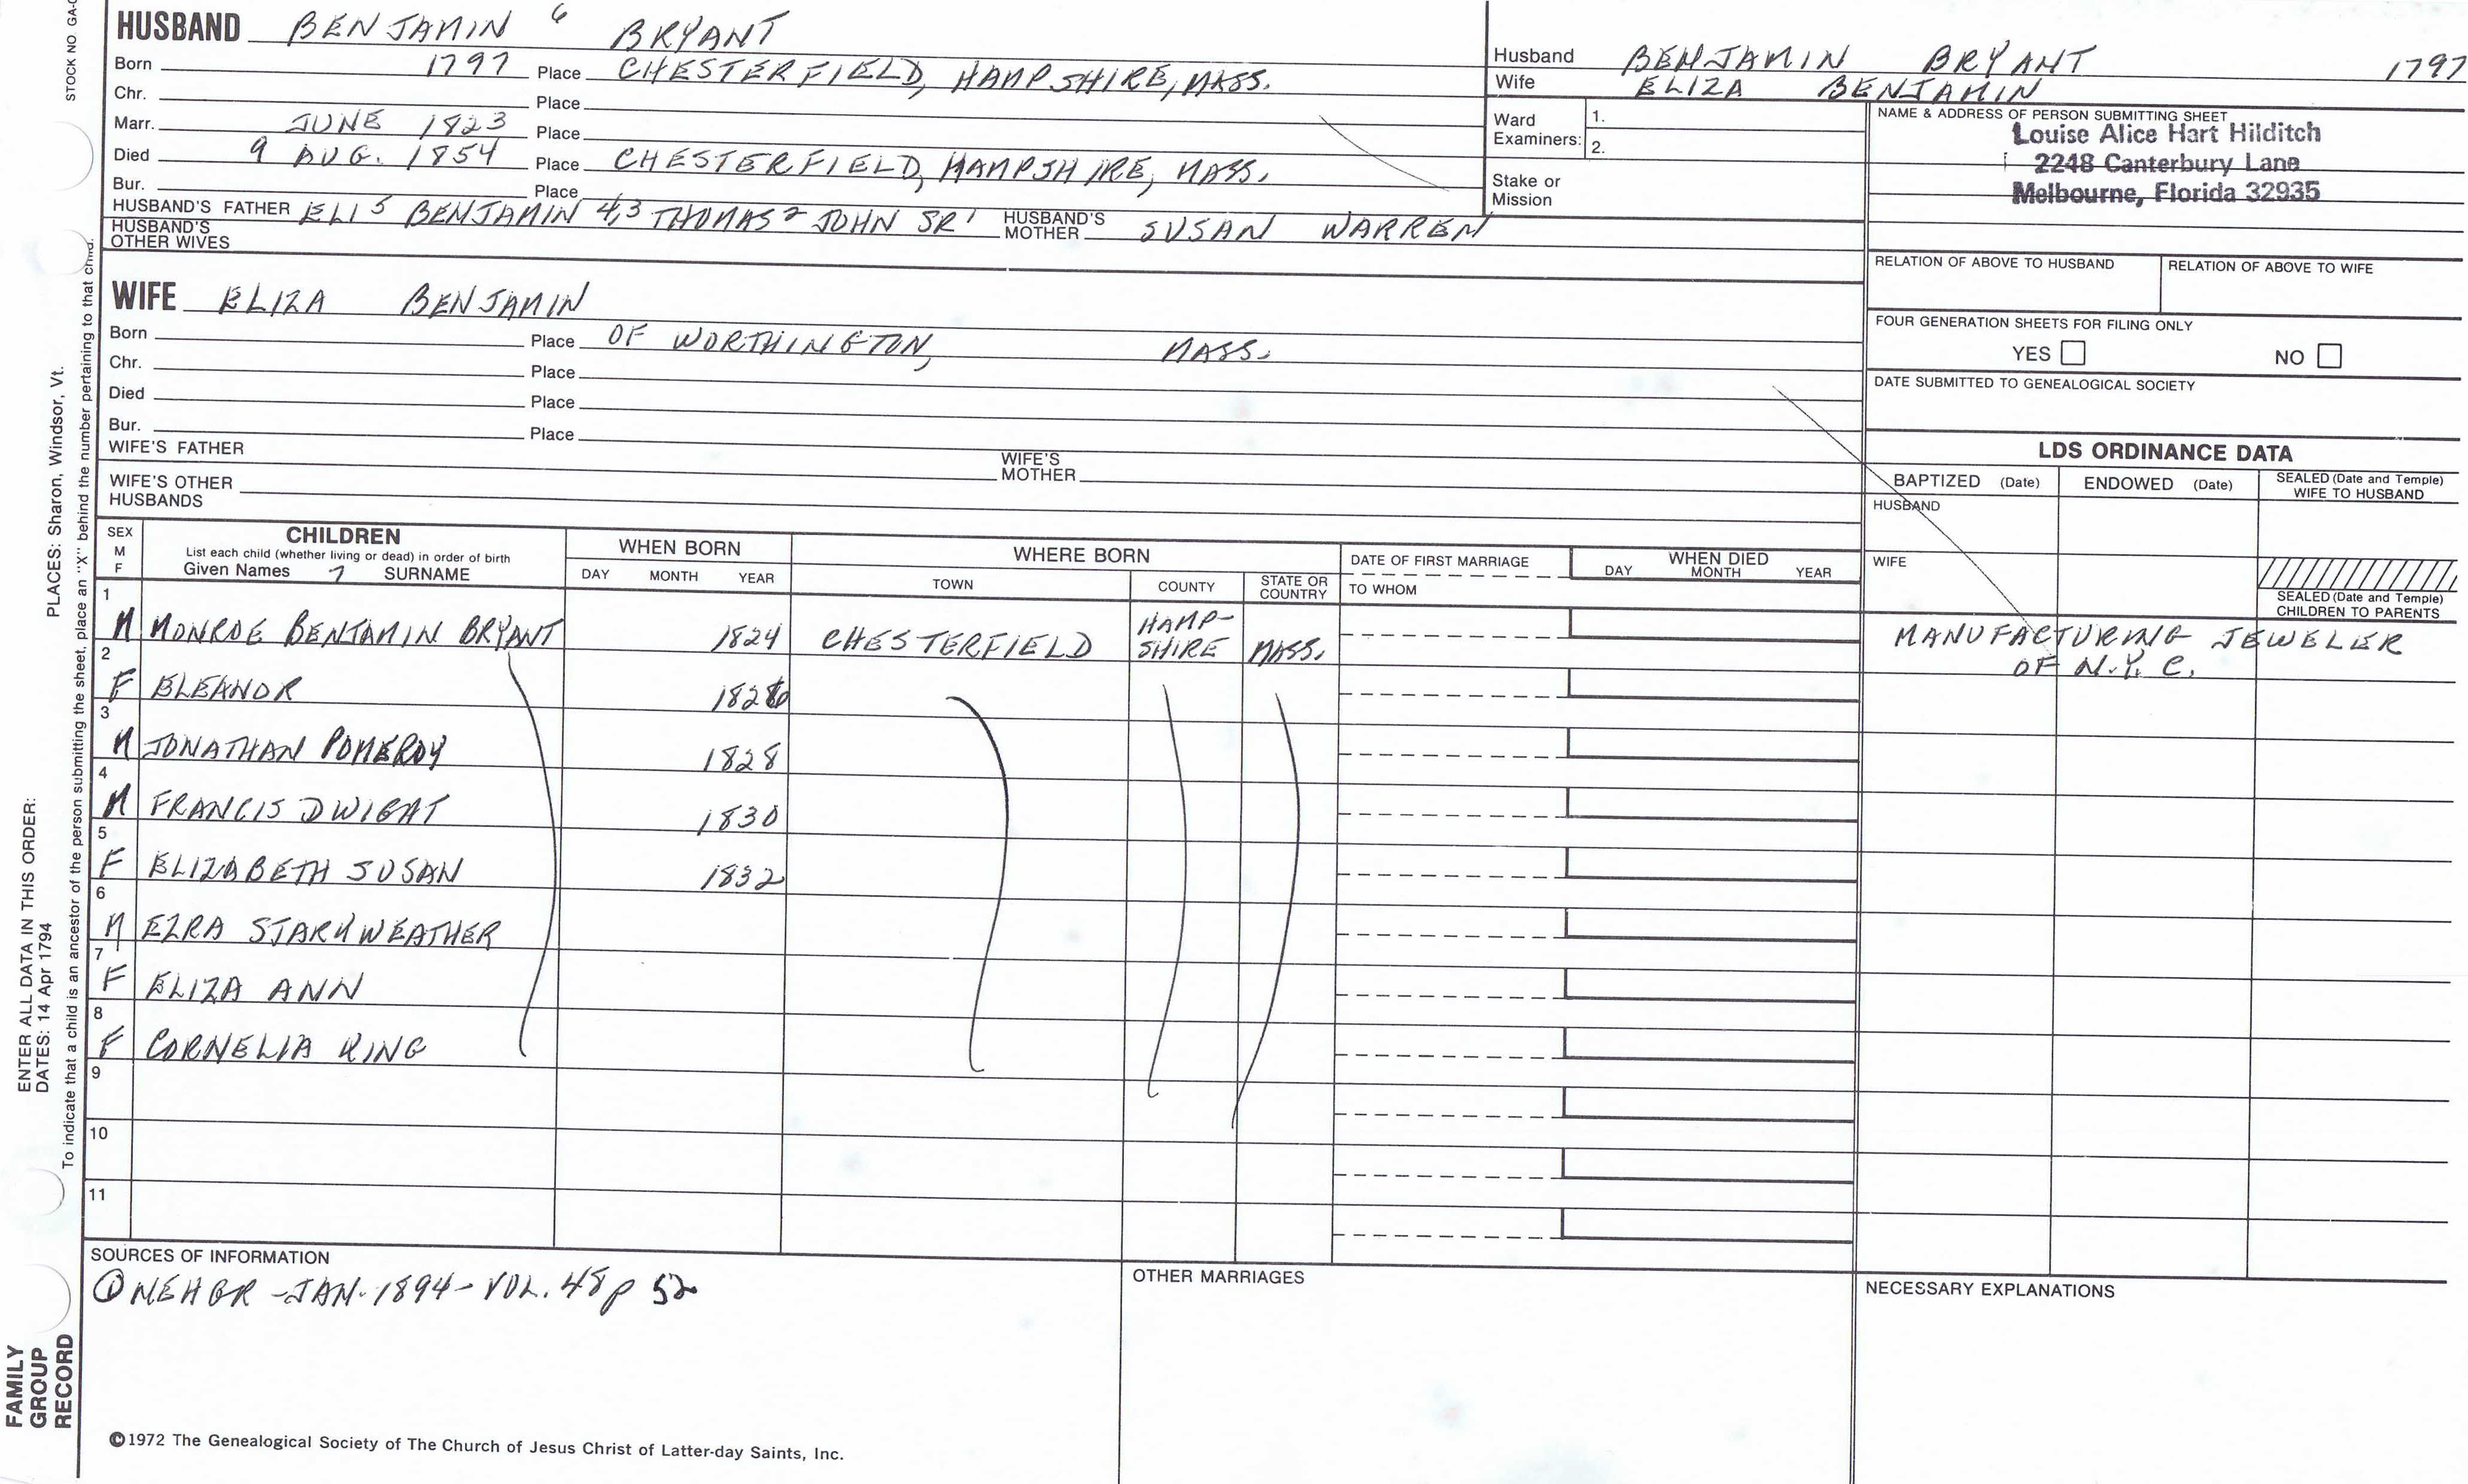 STOCK NO GA-
HUSBAND BENJAMIN 6 BRYANT
Born 1797 Place CHESTERFIELD, HAMPSHIRE, MASS.
Chr. Place
Marr. JUNE 1823 Place
Died 9 AUG. 1854 Place CHESTERFIELD, HAMPSHIRE, MASS.
Bur. Place
HUSBAND'S FATHER ELI 5 BENJAMIN 4,3 THOMAS 2 JOHN SR 1 HUSBAND'S MOTHER SUSAN WARREN
HUSBAND'S OTHER WIVES
WIFE ELIZA BENJAMIN
Born Place OF WORTHINGTON, MASS.
Chr. Place
Died Place
Bur. Place
WIFE'S FATHER WIFE'S MOTHER
WIFE'S OTHER HUSBANDS
Husband BENJAMIN BRYANT 1797
Wife ELIZA BENJAMIN
Ward Examiners: 1.
2.
Stake or Mission
NAME & ADDRESS OF PERSON SUBMITTING SHEET
Louise Alice Hart Hilditch
2248 Canterbury Lane
Melbourne, Florida 32935
RELATION OF ABOVE TO HUSBAND RELATION OF ABOVE TO WIFE
FOUR GENERATION SHEETS FOR FILING ONLY
YES NO
DATE SUBMITTED TO GENEALOGICAL SOCIETY
LDS ORDINANCE DATA
BAPTIZED (Date) ENDOWED (Date) SEALED (Date and Temple) WIFE TO HUSBAND
HUSBAND
WIFE
SEALED (Date and Temple) CHILDREN TO PARENTS
SEX M F
CHILDREN
List each child (whether living or dead) in order of birth
Given Names 7 SURNAME
WHEN BORN
DAY MONTH YEAR
WHERE BORN
TOWN COUNTY STATE OR COUNTRY
DATE OF FIRST MARRIAGE
TO WHOM
WHEN DIED
DAY MONTH YEAR
1 M MONROE BENJAMIN BRYANT 1824 CHESTERFIELD HAMP-SHIRE MASS. MANUFACTURING JEWELER
OF N.Y. C.
2 F ELEANOR 1826
3 M JONATHAN POMEROY 1828
4 M FRANCIS DWIGHT 1830
5 F ELIZABETH SUSAN 1832
6 M EZRA STARKWEATHER
7 F ELIZA ANN
8 F CORNELIA KING
9
10
11
SOURCES OF INFORMATION
① NEHGR - JAN. 1894 - VOL. 48 p 52
OTHER MARRIAGES
NECESSARY EXPLANATIONS
©1972 The Genealogical Society of The Church of Jesus Christ of Latter-day Saints, Inc.
FAMILY GROUP RECORD
ENTER ALL DATA IN THIS ORDER:
DATES: 14 Apr 1794 PLACES: Sharon, Windsor, Vt.
To indicate that a child is an ancestor of the person submitting the sheet, place an "X" behind the number pertaining to that child.